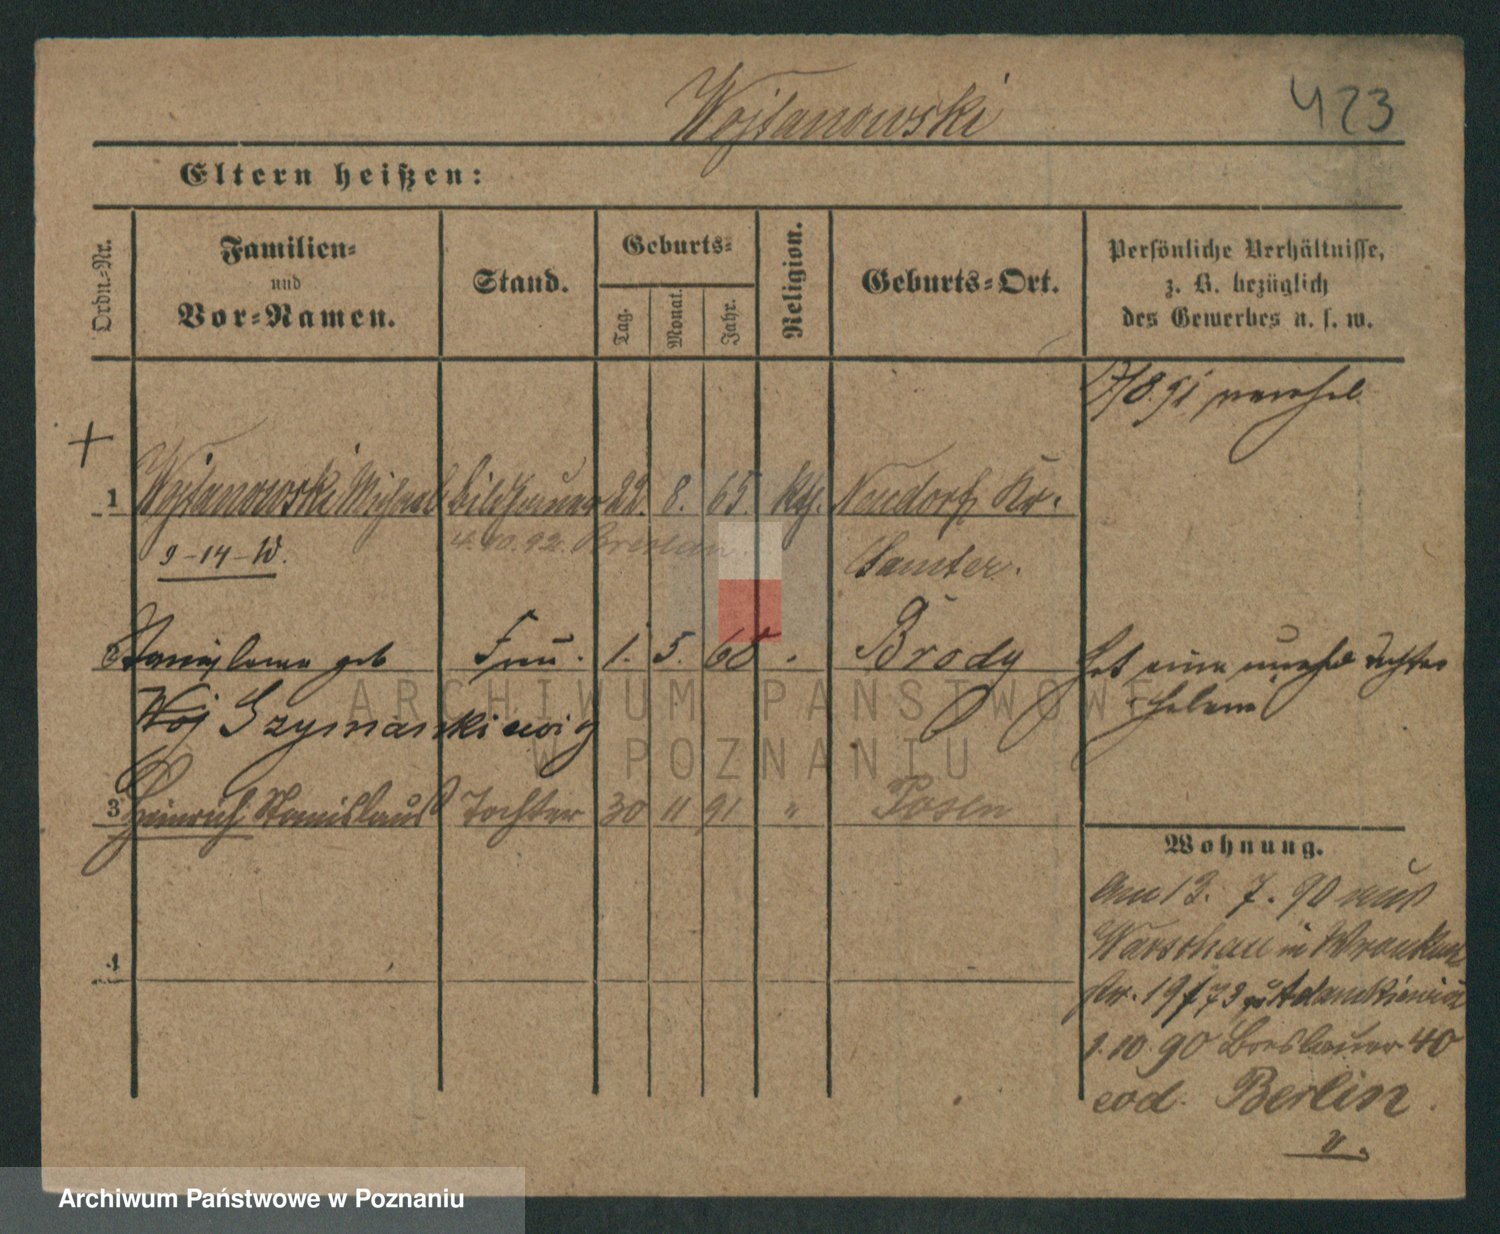 Wojtanowski
423
Eltern heißen:
Ordn.-Nr.
Familien-
und
Vor-Namen.
Stand.
Geburts-
Tag.
Monat.
Jahr.
Religion.
Geburts-Ort.
Persönliche Verhältnisse,
z. B. bezüglich
des Gewerbes u. s. w.
17/8.91
+
1 Wojtanowski Michael Bildhauer 22. 8. 65. kth. Neudorf Kr.
9-14-W. 4.10.92. Breslau. Samter.
Stanislawa geb Frau. 1. 5. 68 Brody hat eine Tochter
Woj Szymankiewig Helena
3 Heinrich Stanislaus Tochter 30 11 91 " Posen
Wohnung.
Am 13. 7. 90 aus
Warschau in Wronker
Str. 19/73 Adamkiewicz
1.10.90 Breslauer 40
4
eod. Berlin.
v.
ARCHIWUM PAŃSTWOWE
W POZNANIU
Archiwum Państwowe w Poznaniu